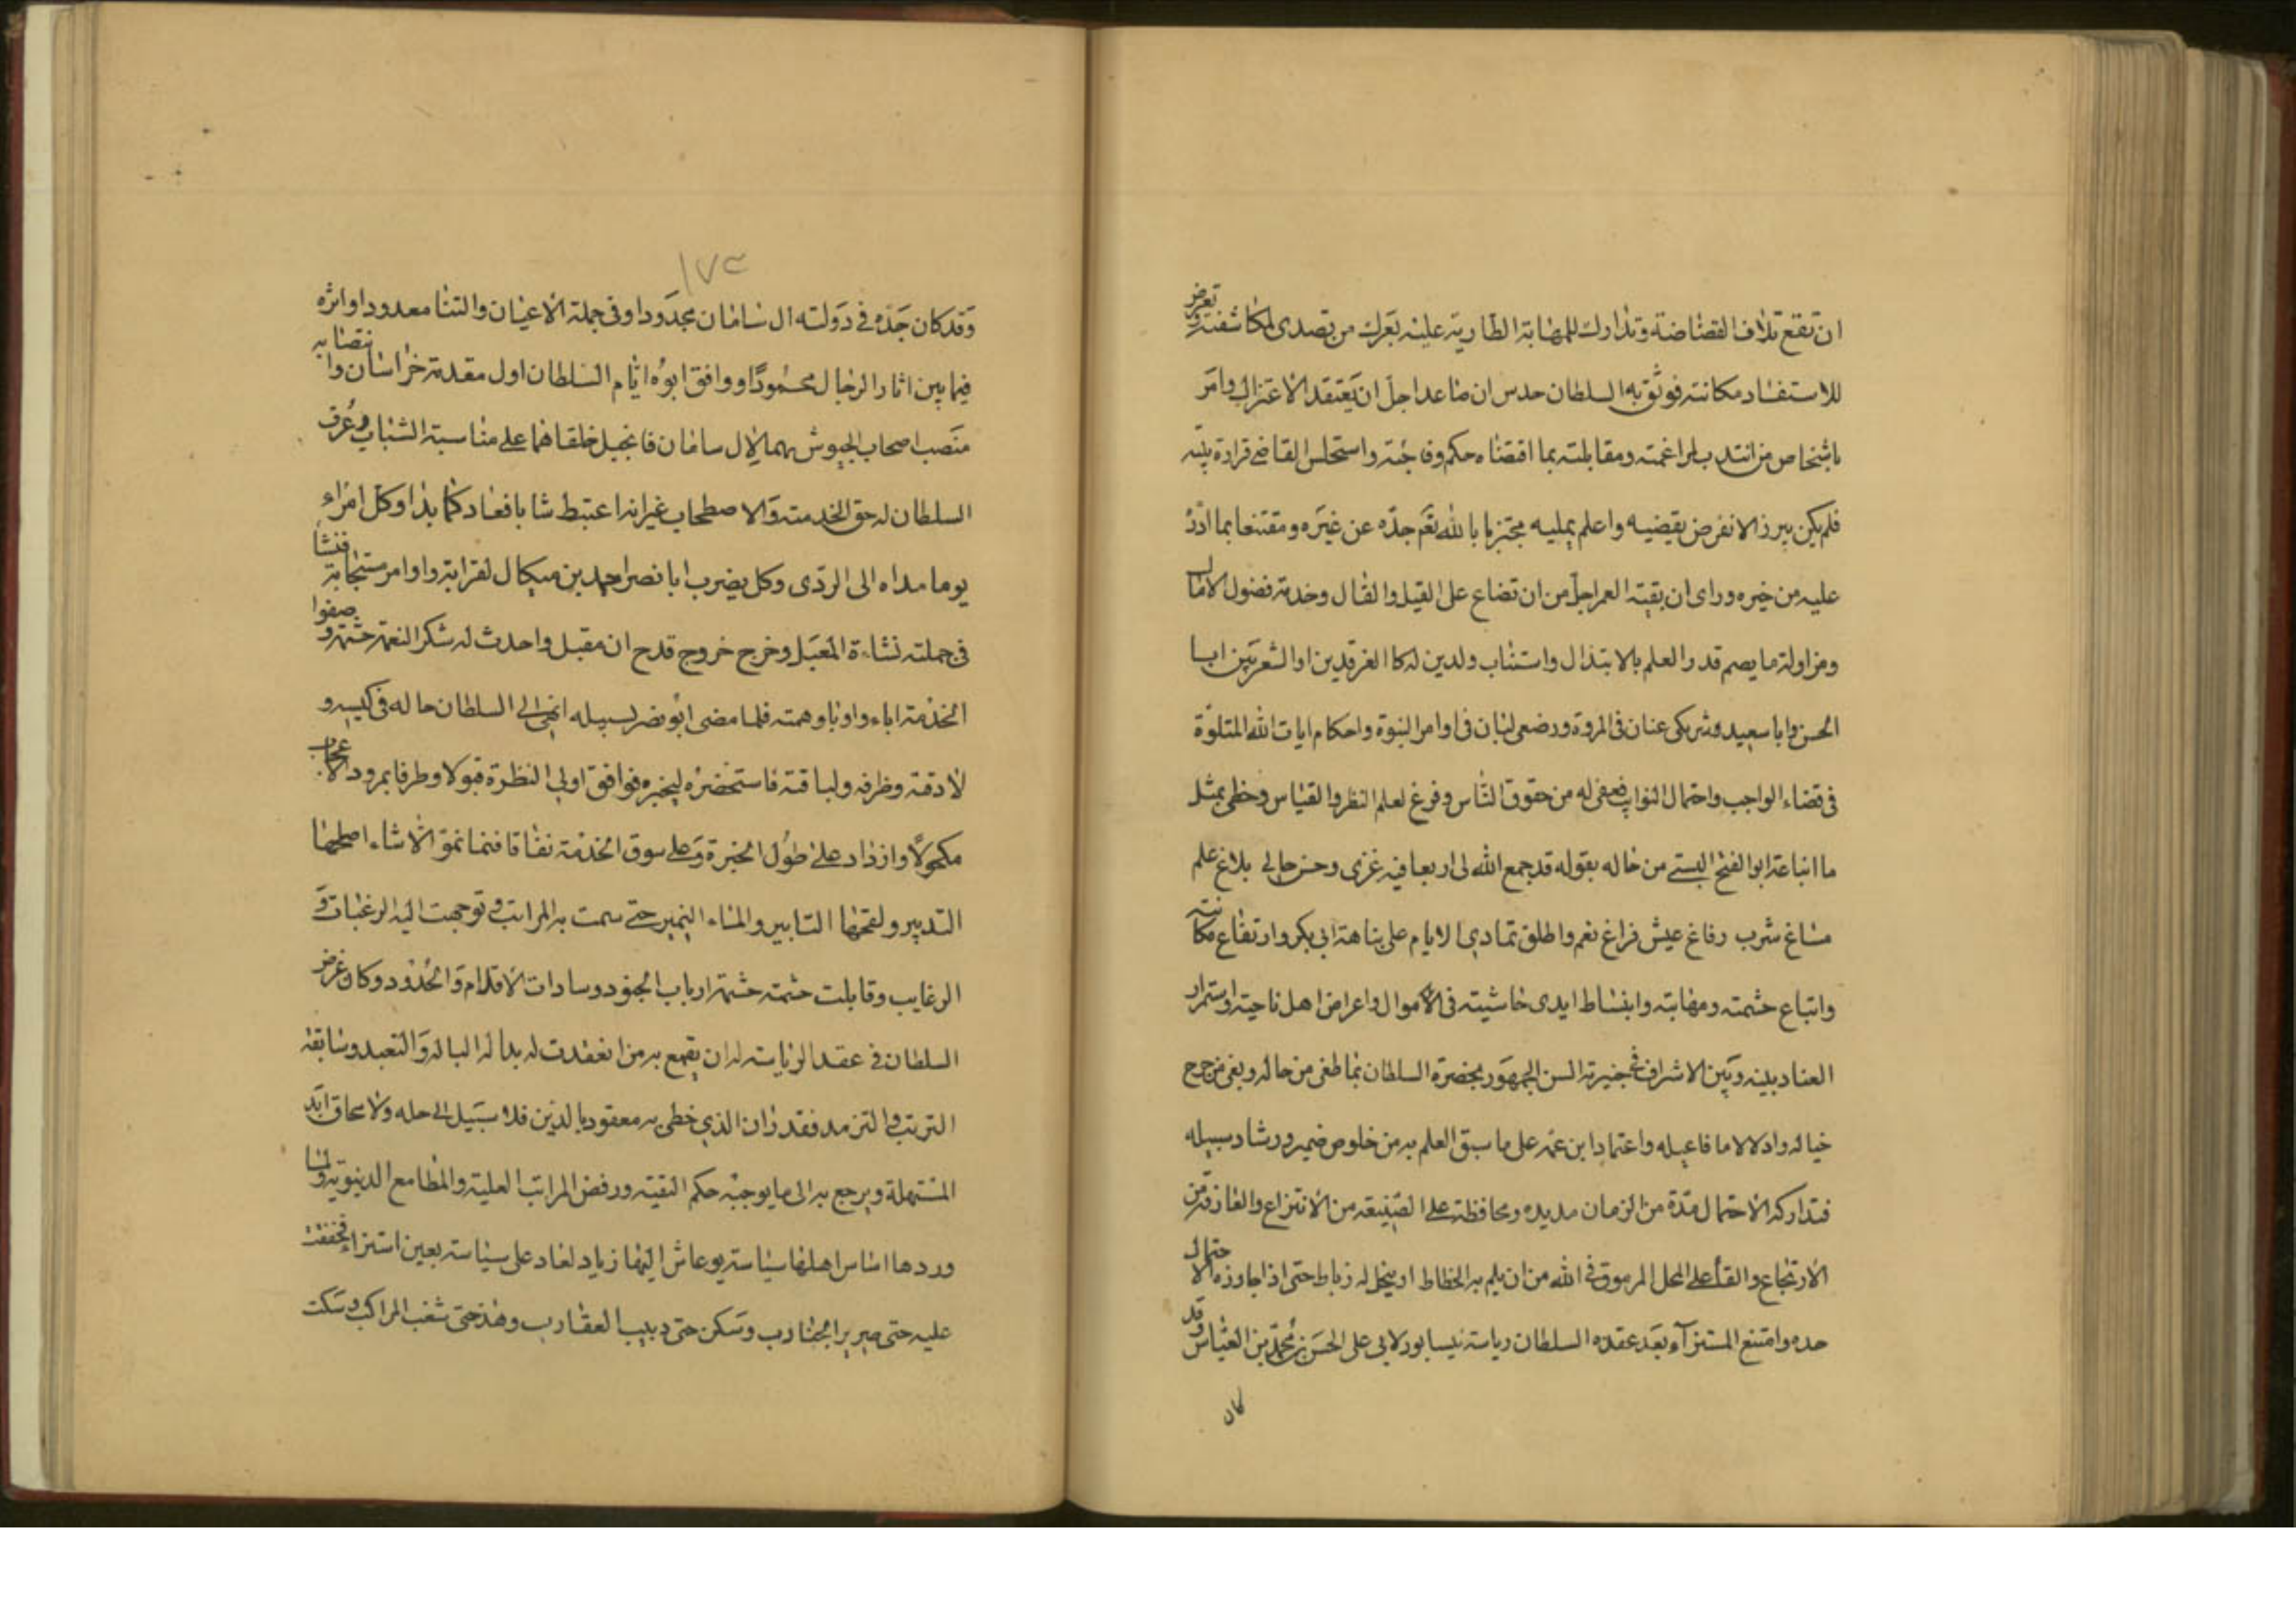 ان تقع تلاف الفضاضة وتدارك للمهابة الطارية عليه بعرك من تصدى لمكاشفته وتعرض
للاستفساد مكانته فوثق به السلطان حدس ان ما عدا جل ان يعتقد الاعتزال وامر
باشخاص من انتدب لمراغمته ومقابلته بما اقتضاه حكم وقاحته واستحلس القاضي قرارة بيته
فلم يكن يبرز الا نفرض يقضيه واعلم يمليه مجتزيا بالله نعم جده عن غيره ومقتنعا بما ادر
عليه من خيره وراى ان بقية العمر اجل من ان تضاع على القيل والقال وخدمة فضول الامال
ومزاولة ما يصم قدر العلم بالابتذال واستناب ولدين له كالفرقدين او الشعريين ابا
الحسن وابا سعيد وشريكى عنان فى المروة ورضعى لبان فى اوامر النبوة واحكام ايات الله المتلوة
فى قضاء الواجب واحتمال النوايب فعفى له من حقوق الناس وفرغ لعلم النظر والقياس وحظى بمثل
ما انباعنه ابو الفتح البستى من حاله بقوله قد جمع الله لى اربعا فيه غزى وحسن حالى بلاغ علم
مساغ شرب رفاغ عيش فراغ نغم واطلق تمادى الايام على نباهة ابى بكر وارتفاع مكانته
واتباع حشمته ومهابته وانبساط ايدى حاشيته فى الاموال واعراض اهل ناحيته واستمرار
العناد بينه وبين الاشراف السن الجمهور بحضرة السلطان بما طغى من حاله وبغى من
خياله وادلالا ما فاعيله واعتماد ابن عمه على ما سبق العلم به من خلوص ضميره ورشاد سبيله
فتداركه الاحتمال مدة من الزمان مديده ومحافظة على الصنيعة من الانتزاع والعارفة من
الارتجاع والقا على المحل المرموق فى الله من ان يلم به الخطاط او ينحل له رباط حتى اذا جاوزه الاحتمال
حده وامتنع المستنزاء بعد عقده السلطان رياسة نيسابور لابى على الحسن بن محمد بن العباس وقد
كان
١٧٣
وقد كان جده فى دولة ال سامان مجدودا وفى جملة الاعيان والتنا معدودا واثره
فيما بين اثار الرجال محمودا ووافق ابوه ايام السلطان اول مقدمة خراسان وانتصابه
منصب اصحاب الجيوش بهما لال سامان فانجبل خلقاهما على مناسبة الشباب وعرف
السلطان له حق الخدمة والاصطحاب غير انه اعتبط شابا فعاد كما بدا وكل امراء
يوما مداه الى الردى وكل يضرب ابا نصر احمد بن ميكال لقرابة واوامر مستجابة فنشا
فى جملته نشاءة المقبل وخرج خروج قدح ان مقبل واحدث له شكر النعمة حشمة وصفوا
الخدمة اباء واوباوهمته فلما مضى ابو نصر لسبيله انهى الى السلطان حاله فى كيسه و
لادقته وظرفه ولباقته فاستحضره ليخبره فوافق اولى النظرة قبولا وطرفا بمرود الاعجاب
مكحولا وازداد على طول الخبرة وعلى سوق الخدمة نفاقا فنما نمو الاشاء اصطحبها
التدبير ولقحها التابير والماء النمير حتى سمت به المراتب وتوجهت اليه الرغبات و
الرغايب وقابلت حشمته حشمة ارباب الجنود وسادات الاقلام والحدود وكان غرض
السلطان فى عقد الرياسة له ان يقمع به من انعقدت له بداله الباله والتعبد وسابقة
التربت والتزمد فقد ران الذى خطى به معقود بالدين فلا سبيل الى حله ولا محاق ابد
المستهلة ويرجع به الى ما يوجبه حكم التقية ورفض المراتب العلية والمطامع الدنيوية ولما
وردها اساس اهلها سياسة بوعاش اليها زياد لعاد على سياسته بعين استنزاء فخففت
عليه حتى صرير الجنادب وسكن حتى دبيب العقارب وهذ حتى شغب المراكب وسكت